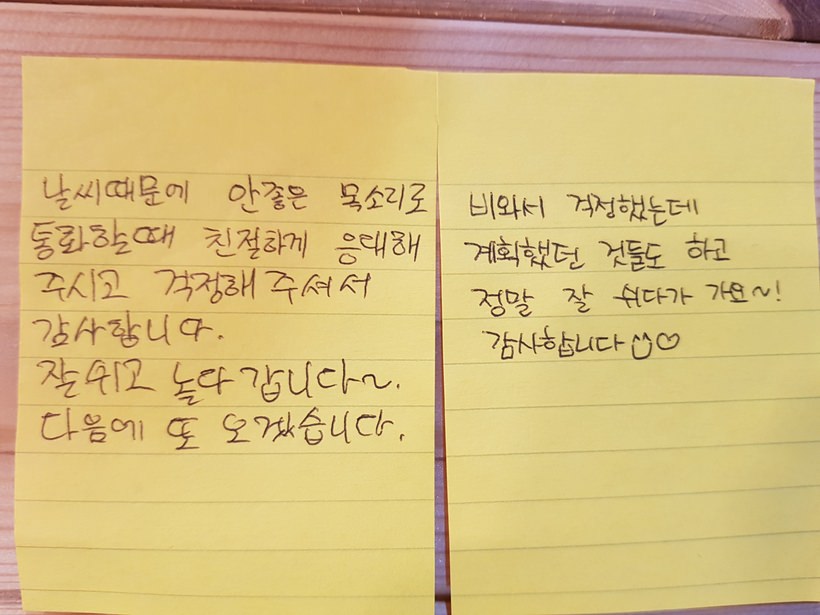 날씨때문에 안좋은 목소리로
통화할때 친절하게 응대해
주시고 걱정해 주셔서
감사합니다.
잘쉬고 놀다 갑니다~.
다음에 또 오겠습니다.
비와서 걱정했는데
계획했던 것들도 하고
정말 잘 쉬다가 가요~!
감사합니다